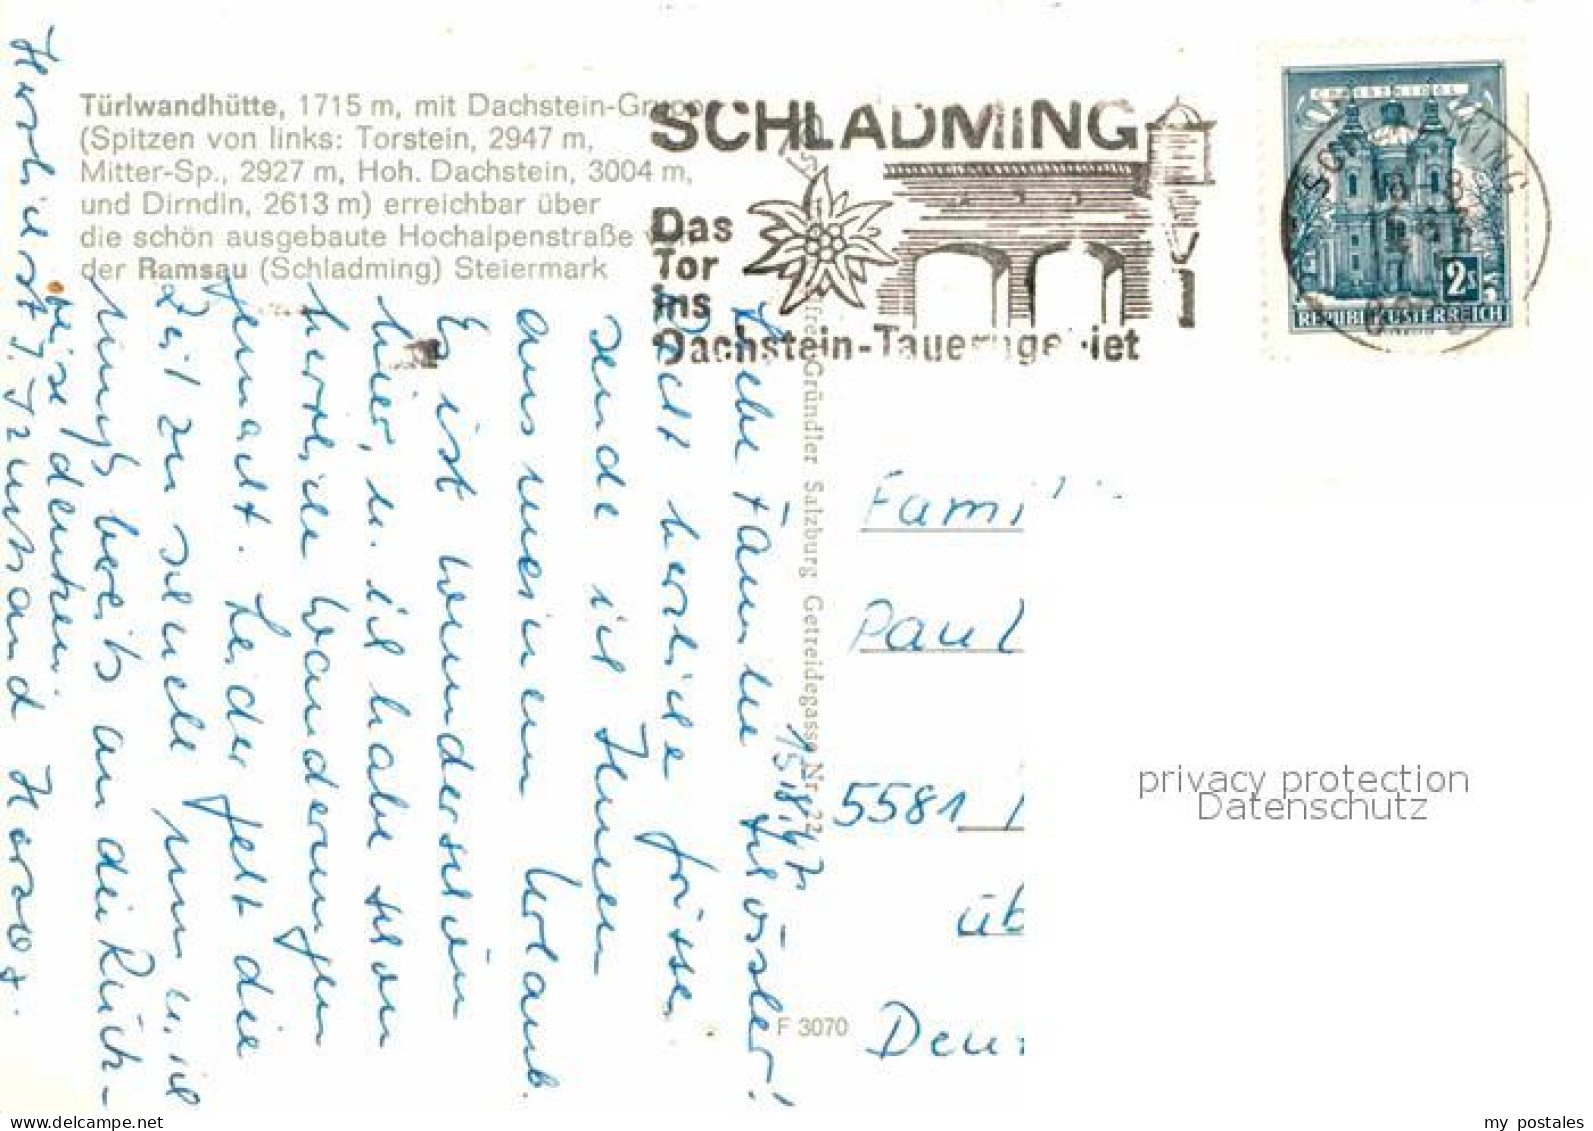 Türlwandhütte, 1715 m, mit Dachstein-Gruppe
(Spitzen von links: Torstein, 2947 m,
Mitter-Sp., 2927 m, Hoh. Dachstein, 3004 m,
und Dirndln, 2613 m) erreichbar über
die schön ausgebaute Hochalpenstraße von
der Ramsau (Schladming) Steiermark
SCHLADMING
Das
Tor
ins
Dachstein-Tauerngebiet
CHRISTKINDL
2S
REPUBLIK ÖSTERREICH
15.8.47.
Liebe Familie Schössler!
herzliche Grüsse
sende ich Ihnen
aus meinem Urlaub.
Es ist wunderschön
hier, u. ich habe schon
herrliche Wanderungen
gemacht. Leider geht die
Zeit zu schnell rum u. ich
muß bereits an die Rück-
reise denken.
Herzlichst I.
Gründler Salzburg Getreidegasse Nr. 22
F 3070
Fami
Paul
5581
üb
Deu
privacy protection
Datenschutz
delcampe.net
my postales